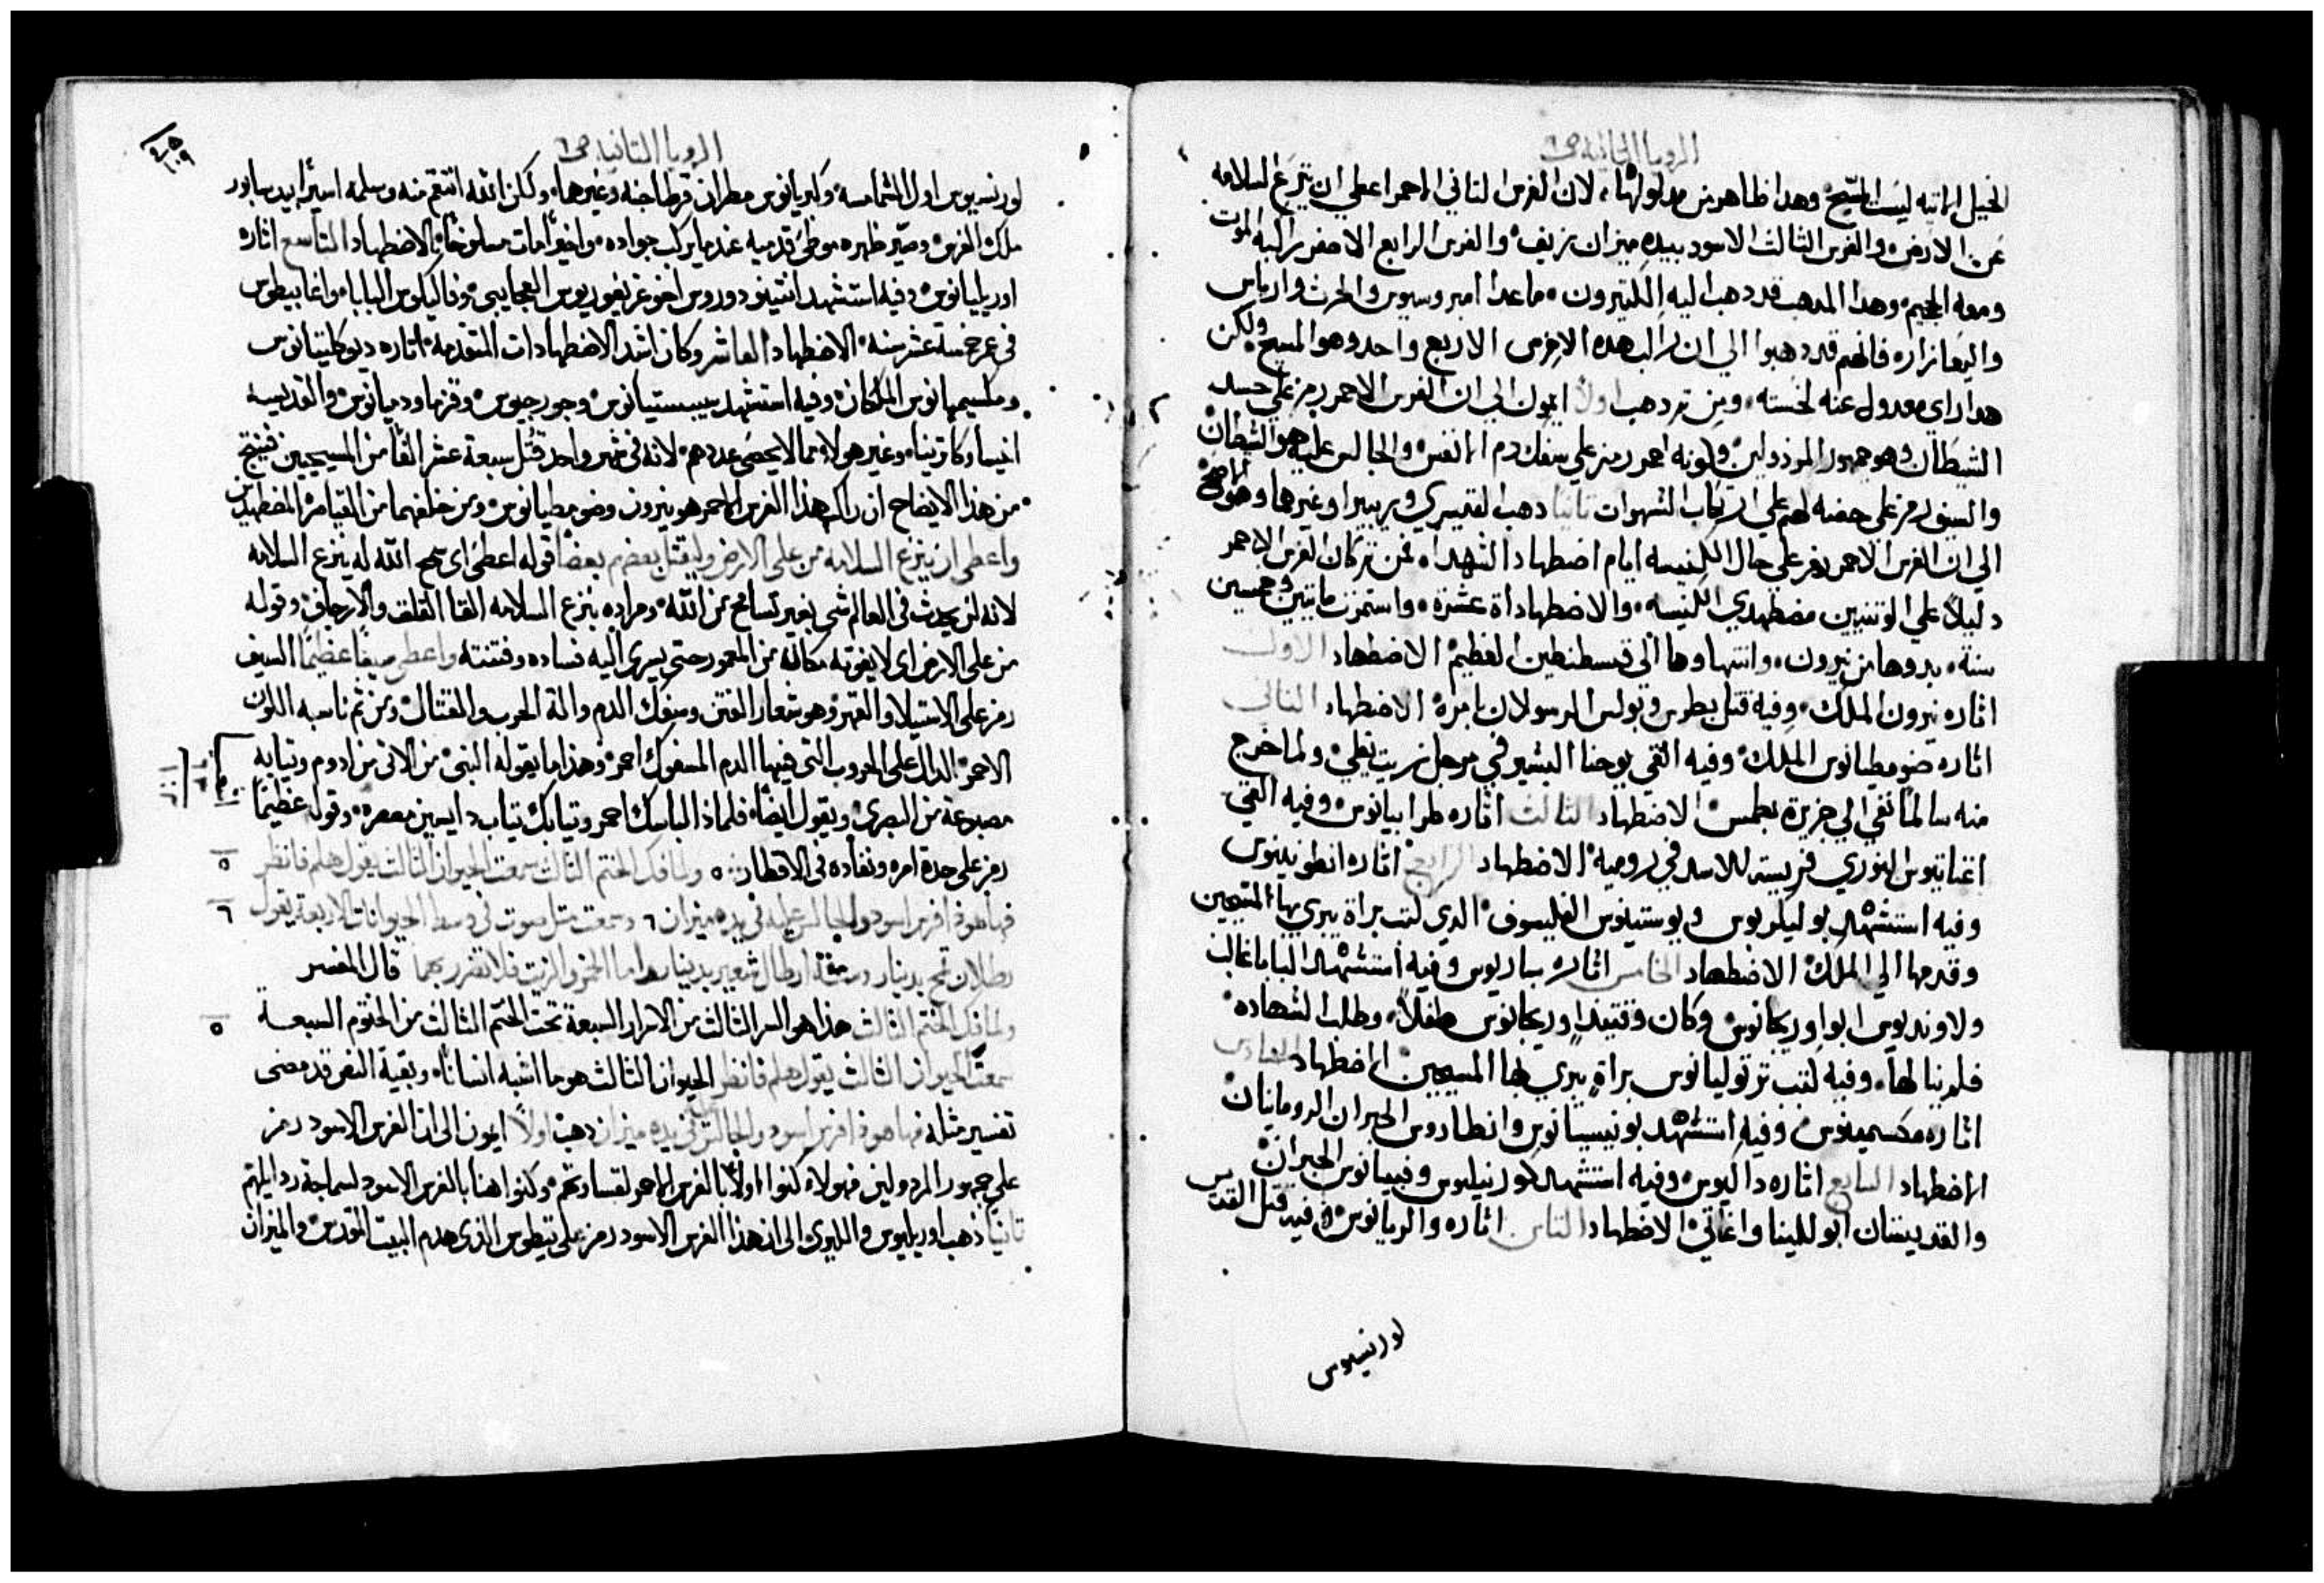 الرويا الثانيه ص٦
الخيل الاتيه ليس المسيح وهدا ظاهر من مدلولاتها، لان الفرس التاني الاحمر اعطي ان ينزع السلامه
عن الارض والفرس الثالث الاسود بيده ميزان نزيف والفرس الرابع الاصفر راكبه الموت
ومعه الجحيم وهدا المدهب قد دهب اليه الكتيرون ماعدا امبروسيوس والحرث وارتاس
والبعازاره فانهم قد دهبوا الي ان راكب هده الافرس الاربع واحد وهو المسيح ولكن
هدا راي معدول عنه لخسته ومن تم دهب اولاً ايمون الي ان الفرس الاحمر رمز علي جسد
الشيطان وهو جمهور المرذولين ولونه احمر رمز علي سفك دم الانفس والجالس عليه هو الشيطان
والسيف رمز علي حضه لهم علي ارتكاب الشهوات تانيا دهب لقديسري وبربيرا وغيرهما وهو الاصح
الي ان الفرس الاحمر يفر علي حال الكنيسه ايام اضطهاد الشهدا، فمن تم كان الفرس الاحمر
دليلاً علي الوتنيين مضطهدي الكنيسه والاضطهادات عشرة واستمرت مايتين وخمسين
سنة بدوها من نيرون وانتهاوها الي قسطنطين العظيم الاضطهاد الاول
اثاره نيرون الملك وفيه قتل بطرس وبولس الرسولان بامره الاضطهاد التاني
اثاره ضومطيانوس الملك وفيه القي يوحنا البشير في مرجل زيت يغلي ولما خرج
منه سالماً نفي الي جزيرة بطمس الاضطهاد التالت اثاره طرابيانوس وفيه القي
اغناتيوس النوري فريسة للاسد في رومية الاضطهاد الرابع اثاره انطونينوس
وفيه استشهد بوليكربوس ويوستينوس الفليسوف الدي كتب براة يبري بها المتيحيين
وقدمها الي الملك الاضطهاد الخامس اثاره ساريوس وفيه استشهد البابا غالب
ولاونديوس ابو اوريجانوس وكان وقتيد اوريجانوس طفلاً وطلب الشهاده
فلم ينالها وفيه كتب ترتوليانوس براة يبري بها المسيحيين الاضطهاد السادس
اثاره مكسمينوس وفيه استشهد بونيسيانوس وانطاروس الحبران الرومانيان
الاضطهاد السابع اثاره داكيوس وفيه استشهد كورنيليوس وفبيانوس الحبران
والقديستان ابوللينا واغاتي الاضطهاد التامن اثاره والريانوس وفيه قتل القديس
لورنسيوس
الرويا الثانيه ص٦
لورنسيوس اول الشمامسة وكبريانوس مطران قرطاجنه وغيرهما ولكن الله انتقم منه وسلمه اسيراً بيد سابور
ملك الفرس وصيّر ظهره موطئ قدميه عندما يركب جواده واخيراً مات مسلوخاً الاضطهاد التاسع اثاره
اوريليانوس وفيه استشهد انتينودوروس اخو غريغوريوس العجايبي وفاليكوس البابا واغابيطوس
في عمر خمسة عشر سنه الاضطهاد العاشر وكان اشد الاضطهادات المتقدمة اثاره ديوكليتيانوس
ومكسيميانوس الملكان وفيه استشهد سيبستيانوس وجورجيوس وقزما ودميانوس والقديسة
انيسا وكاترينا وغير هولاء مما لا يحصى عددهم لانه في شهر واحد قتل سبعة عشر الفاً من المسيحيين فينتج
من هذا الايضاح ان راكب هذا الفرس الاحمر هو نيرون وضومطيانوس ومن خلفهما من القياصرة المضطهدين
واعطى ان ينزع السلامه من على الارض وليقتل بعضهم بعضاً قوله اعطى اي سمح الله له بنزع السلامه
لانه لن يحدث في العالم شي بغير تسامح من الله ومراده بنزع السلامه القا القلق والارجاف وقوله
من على الارض اي لا يفوته مكانه من المعمور حتى يسري اليه فساده وفتنته واعطى سيفاً عظيماً السيف
رمز على الاستيلا والقهر وهو شعار الفتن وسفك الدم والة الحرب والقتال ومن ثم ناسبه اللون
الاحمر الدال على الحروب التي فيها الدم المسفوك احمر وهذا ما يقوله النبي من الاتى من ادوم وتيابه
مصبوغة من البصرى ويقول ايضاً فلماذا لباسك احمر وتيابك تياب دايسين معصره وقوله عظيماً
رمز على حدة امره ونفاده في الاقطار ٥ ولما فك الختم الثالث سمعت الحيوان الثالث يقول هلم فانظر
فهاهوذا فرس اسود والجالس عليه في يده ميزان ٦ وسمعت مثل صوت في وسط الحيوانات الاربعة يقول
رطلان قمح بدينار وستة ارطال شعير بدينار واما الخمر والزيت فلا تضرر بهما قال المفسر
ولما فك الختم الثالث هذا هو السر الثالث من الاسرار السبعة تحت الختم الثالث من الختوم السبعة
سمعت الحيوان الثالث يقول هلم فانظر الحيوان الثالث هو ما اشبه انساناً وبقية النص قد مضى
تفسير مثله فهاهوذا فرس اسود والجالس في يده ميزان ذهب اولاً ايمون الى ان الفرس الاسود رمز
على جمهور المرذولين فهولاء كنوا اولاً بالفرس الاحمر لقساوتهم وكنوا هنا بالفرس الاسود لسماجة رذايلهم
ثانياً ذهب اوريليوس والليرى الى ان هذا الفرس الاسود رمز على تيطوس الذي هدم البيت المقدس والميزان